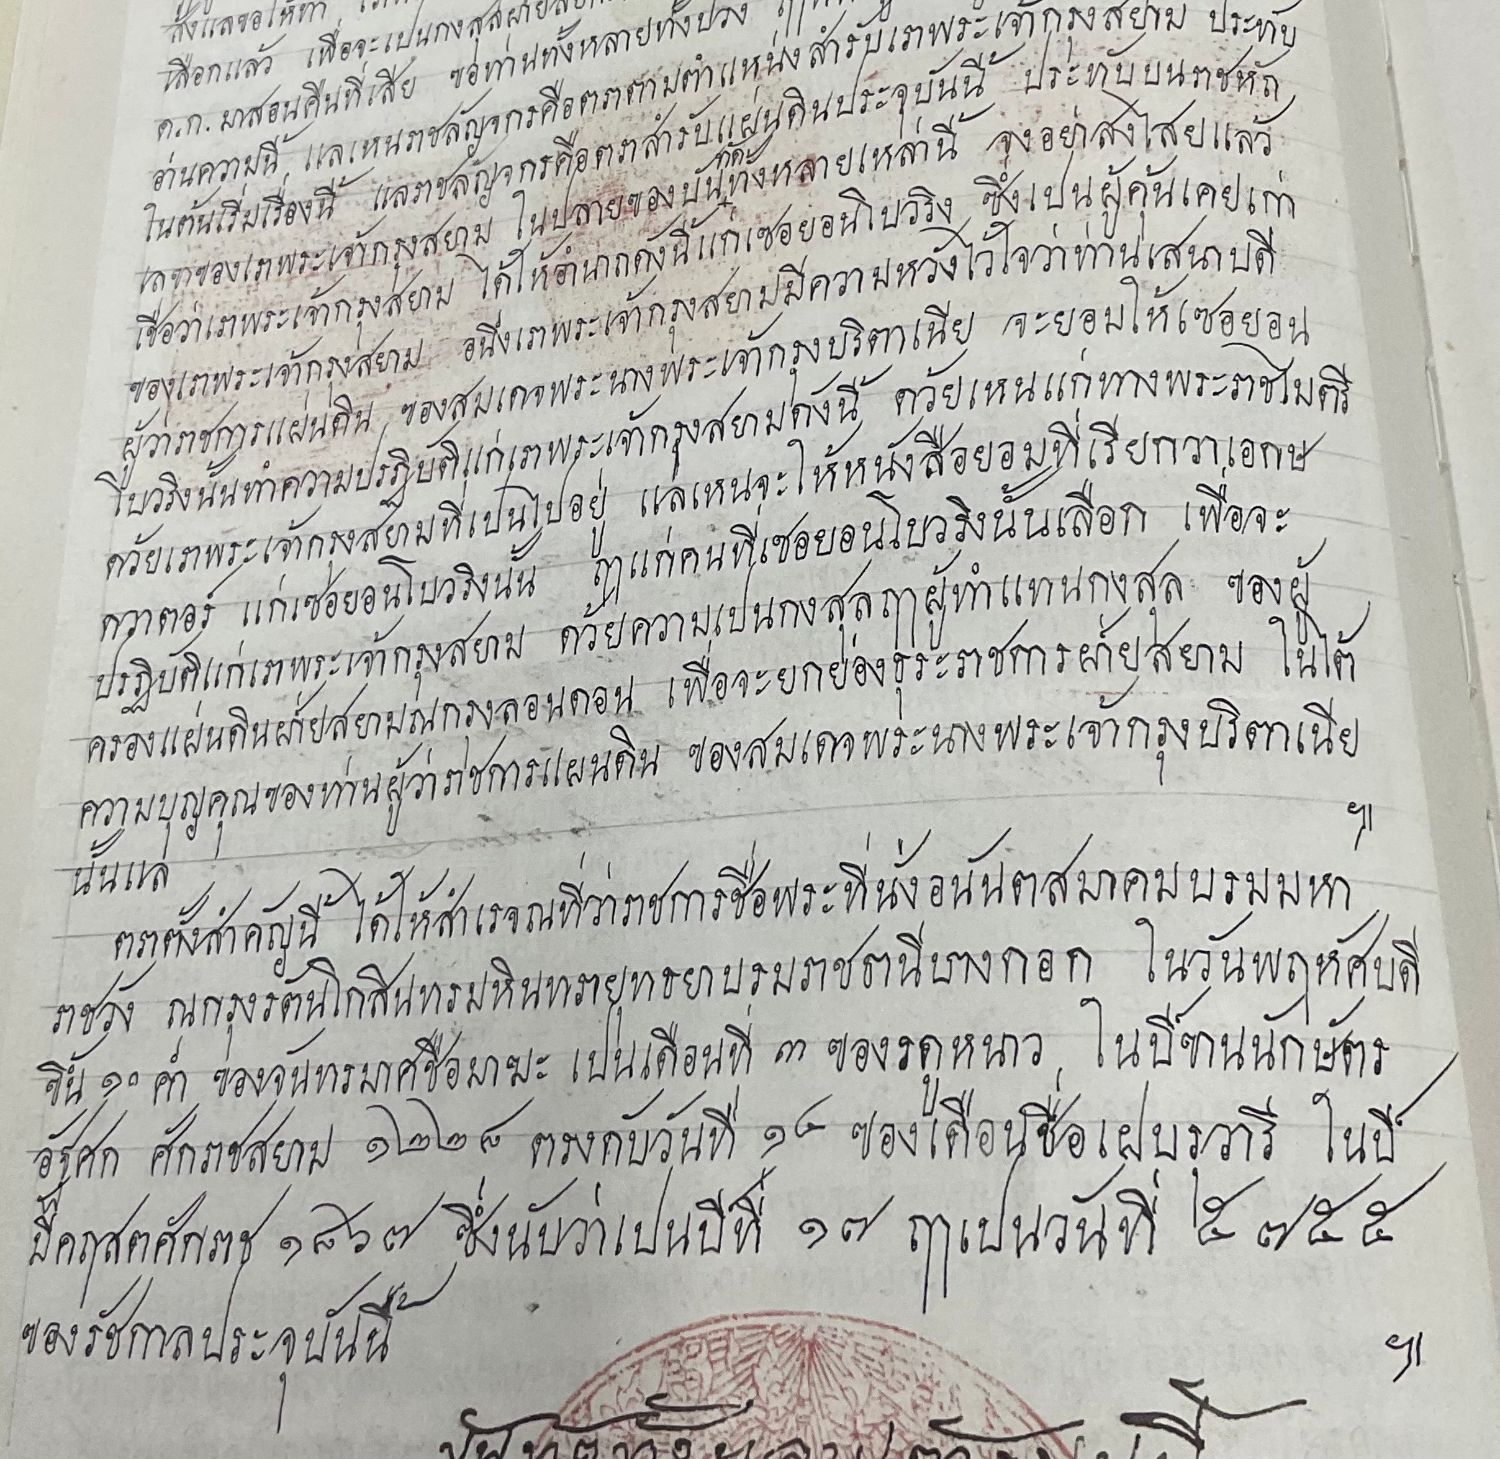 สั่งแลขอให้ทำ
เลือกแล้ว เพื่อจะเปนกงสุลฝ่ายสยาม
ค.ก. มาสอนคืนที่เสีย ขอท่านทั้งหลายทั้งปวง
อ่านความนี้ แลเหนราชลัญจกรคือตราตามตำแหน่งสำรับเราพระเจ้ากรุงสยาม ประทับ
ในต้นเริ่มเรื่องนี้ แลราชลัญจกรคือตราสำรับแผ่นดินประจุบันนี้ ประทับบนราชหัถ
เลขาของเราพระเจ้ากรุงสยาม ในปลายของบันทัดทั้งหลายเหล่านี้ จงอย่าสงไสยแล้ว
เชื่อว่าเราพระเจ้ากรุงสยาม ได้ให้อำนาถดังนี้แก่เซอยอนโบวริง ซึ่งเปนผู้คุ้นเคยเก่า
ของเราพระเจ้ากรุงสยาม อนึ่งเราพระเจ้ากรุงสยามมีความหวังไว้ใจว่าท่านเสนาบดี
ผู้ว่าราชการแผ่นดิน ของสมเดจพระนางพระเจ้ากรุงบริตาเนีย จะยอมให้เซอยอน
โบวริงนั้นทำความปรฏิบัติแก่เราพระเจ้ากรุงสยามดังนี้ ด้วยเหนแก่ทางพระราชไมตรี
ด้วยเราพระเจ้ากรุงสยามที่เปนไปอยู่ แลเหนจะให้หนังสือยอมที่เรียกวาเอกษ
ควาตอร์ แก่เซอยอนโบวริงนั้น ฤๅแก่คนที่เซอยอนโบวริงนั้นเลือก เพื่อจะ
ปรฏิบัติแก่เราพระเจ้ากรุงสยาม ด้วยความเปนกงสุลฤๅผู้ทำแทนกงสุล ของผู้
ครองแผ่นดินฝ่ายสยามณกรุงลอนดอน เพื่อจะยกย่องธุระราชการฝ่ายสยาม ในใต้
ความบุญคุณของท่านผู้ว่าราชการแผนดิน ของสมเดจพระนางพระเจ้ากรุงบริตาเนีย
นั้นแล ๚
ตราตั้งสำคัญนี้ ได้ให้สำเรจณที่ว่าราชการชื่อพระที่นั่งอนันตสมาคมบรมมหา
ราชวัง ณกรุงรัตนโกสินทรมหินทรายุทธยาบรมราชธานีบางกอก ในวันพฤหัศบดี
ขึ้น ๑๐ ค่ำ ของจันทรมาศชื่อมาฆะ เปนเดือนที่ ๓ ของรดูหนาว ในปีขานนักษัตร
อัฐศก ศักราชสยาม ๑๒๒๘ ตรงกับวันที่ ๑๔ ของเดือนชื่อเฝบรุวารี ในปี
มีคฤสตศักราช ๑๘๖๗ ซึ่งนับว่าเปนปีที่ ๑๗ ฤๅเปนวันที่ ๕๗๕๕
ของรัชกาลประจุบันนี้ ๚